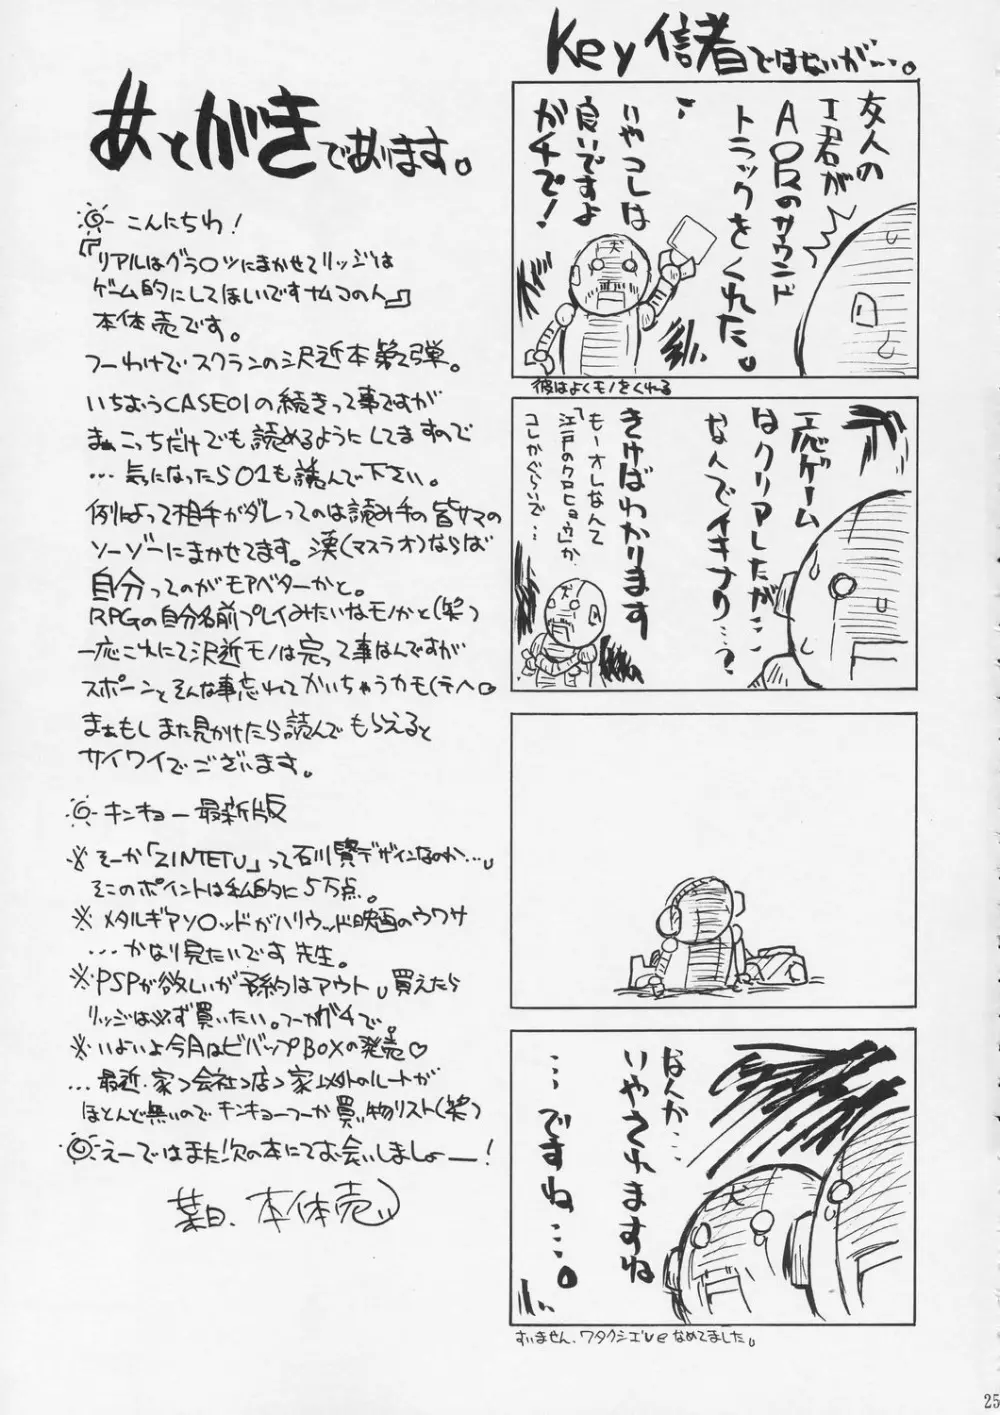 あとがきであります。
こんにちわ!
『リアルはグラ○ツにまかせてリッジは
ゲーム的にしてほしいですナムコの人』
本体売です。
つーわけでスクランの沢近本第2弾。
いちおうCASE01の続きって事ですが
まぁこっちだけでも読めるようにしてますので
…気になったら01も読んで下さい。
例によって相手がダレってのは読み手の皆サマの
ソーゾーにまかせてます。漢(マスラオ)ならば
自分ってのがモアベターかと。
RPGの自分名前プレイみたいなモノかと(笑)
一応これにて沢近モノは完って事なんですが
スポーンとそんな事忘れてかいちゃうカモ(テヘ。
まぁもしまた見かけたら読んでもらえると
サイワイでございます。
キンキョー最新版
※そーか「ZINTETU」って石川賢デザインなのか…。
そこのポイントは私的に5万点。
※メタルギアソ○ッドがハリウッド映画のウワサ
…かなり見たいです先生。
※PSPが欲しいが予約はアウト。買えたら
リッジは必ず買いたい。つーかガチで。
※いよいよ今月はビバップBOXの発売♡
…最近、家>会社>店>家以外のルートが
ほとんど無いのでキンキョーつーか買い物リスト(笑)
えーではまた!次の本にてお会いしましょー!
葉月、本体売
Key信者ではないが…。
友人の
I君が
A○Rのサウンド
トラックをくれた。
いやコレは
良いですよ
ガチで!
彼はよくモノをくれる
一応ゲーム
はクリアしたが…
なんでイキナリ…?
きけばわかります
もーオレなんて
「江戸のクロヒョウ」か、
コレかぐらいで…
なんか…
いやされますね
…ですね…。
すいません、ワタクシエ○eなめてました。
25